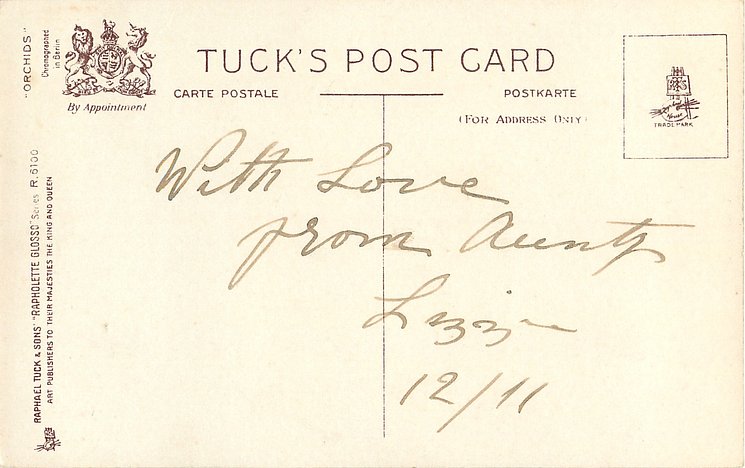 TUCK'S POST CARD
CARTE POSTALE
POSTKARTE
(FOR ADDRESS ONLY)
By Appointment
TRADE MARK
"ORCHIDS"
Chromographed
in Berlin
RAPHAEL TUCK & SONS' "RAPHOLETTE GLOSSO" Series R. 6100
ART PUBLISHERS TO THEIR MAJESTIES THE KING AND QUEEN
With Love
from Aunty
Lizzie
12/11